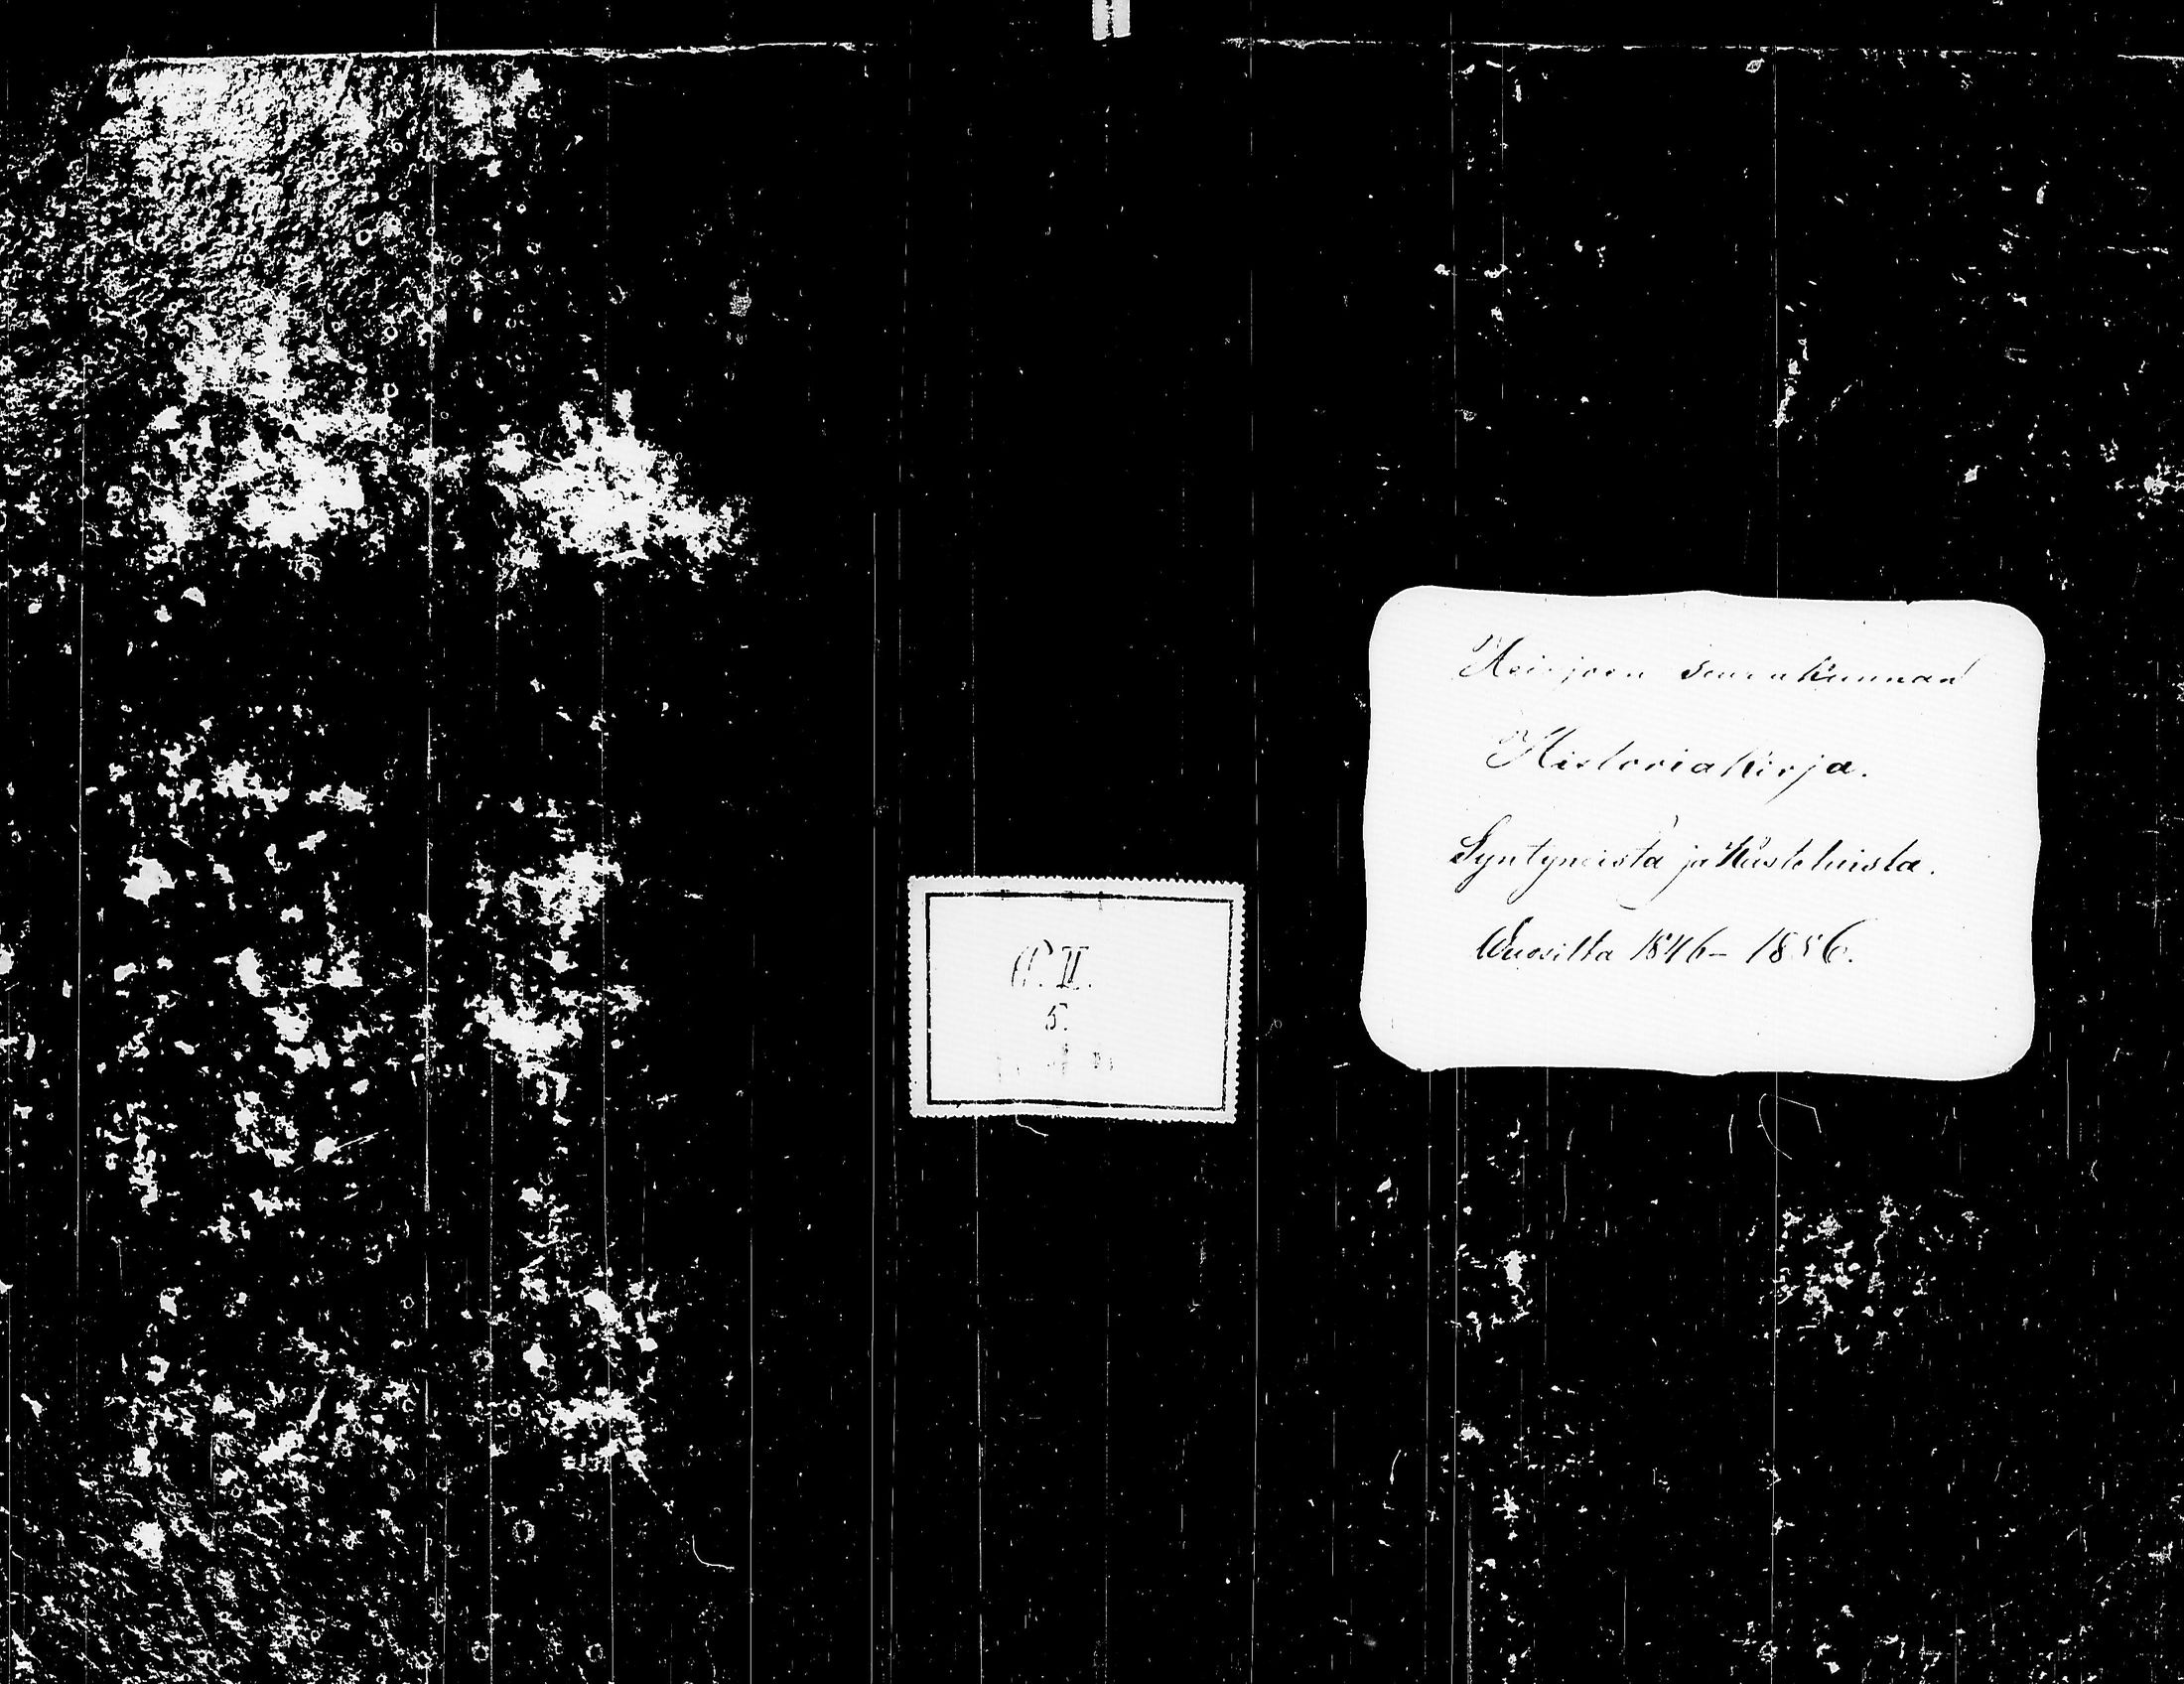 C. II.
5.
Heinjoen seurakunnan
Historiakirja.
Syntyneistä ja Kastetuista.
Wuosilta 1846–1856.